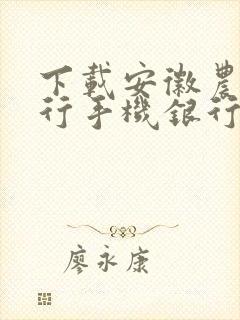 下載安徽農
行手機銀行
廖永康